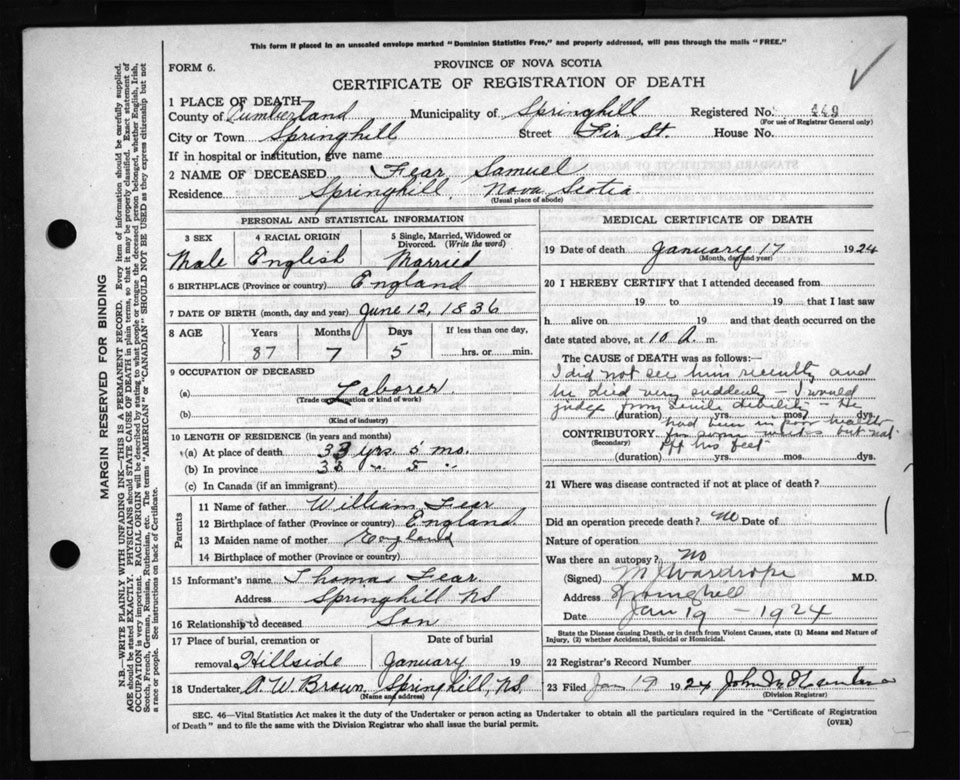 This form if placed in an unsealed envelope marked "Dominion Statistics Free," and properly addressed, will pass through the mails "FREE."
FORM 6.
PROVINCE OF NOVA SCOTIA
CERTIFICATE OF REGISTRATION OF DEATH
1 PLACE OF DEATH—
County of Cumberland Municipality of Springhill Registered No. 449
(For use of Registrar General only)
City or Town Springhill Street Fir St House No.
If in hospital or institution, give name
2 NAME OF DECEASED Fear Samuel
Residence Springhill, Nova Scotia
(Usual place of abode)
PERSONAL AND STATISTICAL INFORMATION
3 SEX 4 RACIAL ORIGIN 5 Single, Married, Widowed or Divorced. (Write the word)
Male English Married
6 BIRTHPLACE (Province or country) England
7 DATE OF BIRTH (month, day and year) June 12, 1836
8 AGE Years Months Days If less than one day,
87 7 5 hrs. or min.
9 OCCUPATION OF DECEASED
(a) Laborer
(Trade occupation or kind of work)
(b)
(Kind of industry)
10 LENGTH OF RESIDENCE (in years and months)
(a) At place of death 33 yrs. 5 mo.
(b) In province 33 " 5 "
(c) In Canada (if an immigrant)
Parents
11 Name of father William Fear
12 Birthplace of father (Province or country) England
13 Maiden name of mother England
14 Birthplace of mother (Province or country)
15 Informant's name Thomas Fear
Address Springhill NS
16 Relationship to deceased Son
17 Place of burial, cremation or Date of burial
removal Hillside January 19
18 Undertaker A. W. Brown, Springhill, N.S.
(Name and address)
MEDICAL CERTIFICATE OF DEATH
19 Date of death January 17 1924
(Month, day and year)
20 I HEREBY CERTIFY that I attended deceased from
19 to 19 that I last saw
h alive on 19 and that death occurred on the
date stated above, at 10 A. m.
The CAUSE of DEATH was as follows:—
I did not see him recently and
he died very suddenly – I would
judge from senile debility – He
(duration) yrs. mos. dys.
had been in poor health
CONTRIBUTORY for some but not
(Secondary)
off his feet
(duration) yrs. mos. dys.
21 Where was disease contracted if not at place of death?
Did an operation precede death? no Date of
Nature of operation
Was there an autopsy? No
(Signed) M J Wardrope M.D.
Address Springhill
Date Jan 19 – 1924
State the Disease causing Death, or in death from Violent Causes, state (1) Means and Nature of
Injury, (2) whether Accidental, Suicidal or Homicidal.
22 Registrar's Record Number
23 Filed Jan 19 1924 John
(Division Registrar)
SEC. 46—Vital Statistics Act makes it the duty of the Undertaker or person acting as Undertaker to obtain all the particulars required in the "Certificate of Registration
of Death" and to file the same with the Division Registrar who shall issue the burial permit.
(OVER)
MARGIN RESERVED FOR BINDING
N.B.—WRITE PLAINLY WITH UNFADING INK—THIS IS A PERMANENT RECORD. Every item of information should be carefully supplied.
AGE should be stated EXACTLY. PHYSICIANS should STATE CAUSE OF DEATH in plain terms, so that it may be properly classified. Exact statement of
OCCUPATION is very important. RACIAL ORIGIN will be described by stating to what people or tongue the deceased person belonged, whether English, Irish,
Scotch, French, German, Russian, Ruthenian, etc. The terms "AMERICAN" or "CANADIAN" SHOULD NOT BE USED as they express citizenship but not
a race or people. See instructions on back of Certificate.